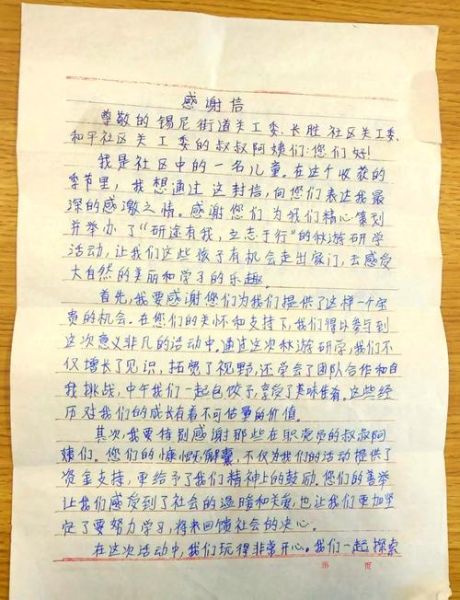 感谢信
尊敬的锡尼街道关工委、长胜社区关工委、
和平社区关工委的叔叔阿姨们:您们好!
我是社区中的一名儿童。在这个收获的
季节里,我想通过这封信,向您们表达我最
深的感激之情。感谢您们为我们精心策划
并举办了“研途有我,立志于行”的秋游研学
活动,让我们这些孩子有机会走出家门,去感受
大自然的美丽和学习的乐趣。
首先,我要感谢您们为我们提供了这样一个宝
贵的机会。在您们的关怀和支持下,我们得以参与到
这次意义非凡的活动中。通过这次秋游研学,我们不
仅增长了见识,拓宽了视野,还学会了团队合作和自
我挑战,中午我们一起包饺子,享受了美味佳肴。这些经
历对我们的成长有着不可估量的价值。
其次,我要特别感谢那些在职党员的叔叔阿
姨们。您们的慷慨解囊,不仅为我们的活动提供了
资金支持,更给予了我们精神上的鼓励。您们的善举
让我们感受到了社会的温暖和关爱,也让我们更加坚
定了要努力学习,将来回馈社会的决心。
在这次活动中,我们玩得非常开心。我们一起探索
第 页